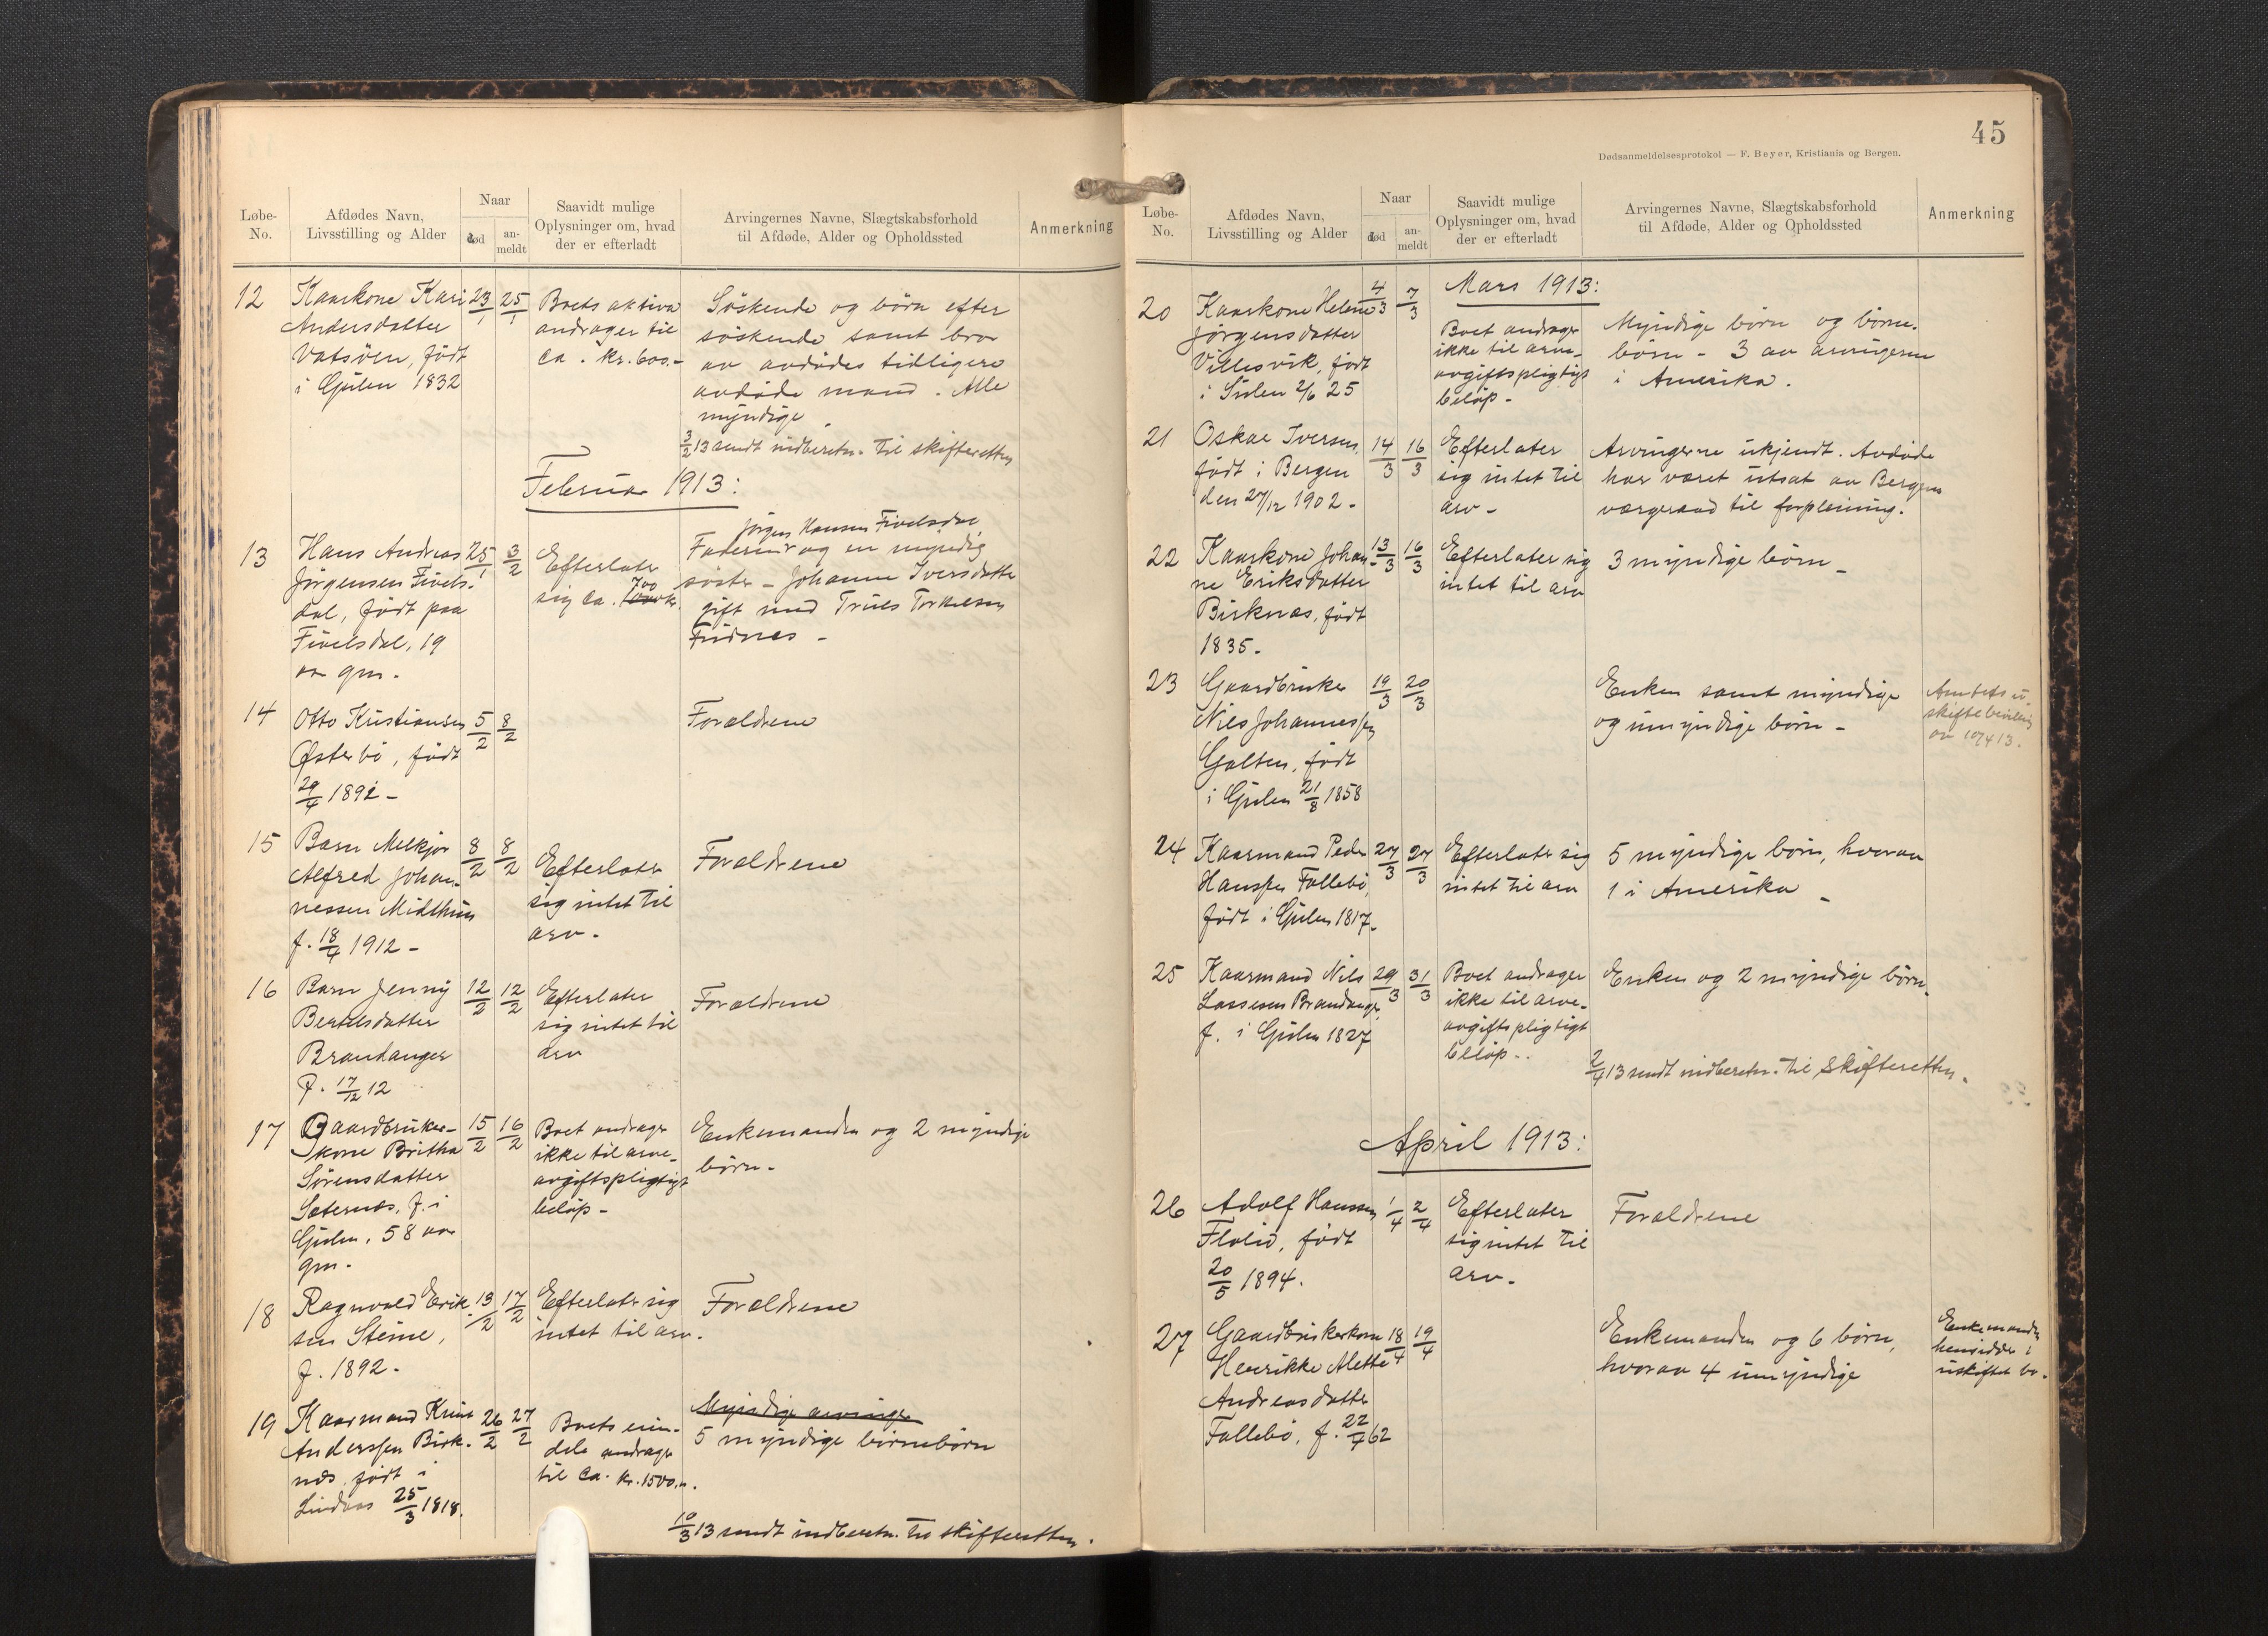 Løbe-
No.
Afdødes Navn,
Livsstilling og Alder
Naar
død
an-
meldt
Saavidt mulige
Oplysninger om, hvad
der er efterladt
Arvingernes Navne, Slægtskabsforhold
til Afdøde, Alder og Opholdssted
Anmerkning
12
Kaarkone Kari
Andersdatter
Vatsöen, født
i Gulen 1832
23/1
25/1
Boets aktiva
andrager til
ca. kr. 600.-
Söskende og börn efter
söskende samt bror
av avdödes tidligere
avdöde mand. Alle
myndige
3/2 13 sendt indberetn. til skifteretten
Februar 1913:
13
Hans Andreas
Jörgensen Fivels-
dal, født paa
Fivelsdal, 19
aar gm.
25/1
3/2
Efterlater
sig ca. 700
Jörgen Hansen Fivelsdal
Faderen og en myndig
söster - Johanne Iversdatter
gift med Truls Torkelsen
14
Otto Kristiansen
Østerbö, født
29/4 1892 -
5/2
8/2
Forældrene
15
Barn Melkjor
Alfred Johan-
nessen Midthun
f. 18/4 1912 -
8/2
8/2
Efterlater
sig intet til
arv.
Forældrene
16
Barn Jenny
Bertelsdatter
Brandanger
f. 17/12 12
12/2
12/2
Efterlater
sig intet til
arv
Forældrene
17
Gaardbruker-
kone Britha
Sörensdatter
Sæternes, f. i
Gulen, 58 aar
gm.
15/2
16/2
Boet andrager
ikke til arve-
avgiftspligtigt
belöp -
Enkemanden og 2 myndige
börn -
18
Ragnvald Erik-
sen Steine,
f. 1892 -
13/2
17/2
Efterlater sig
intet til arv.
Forældrene
19
Kaarmand
Anderssen Birk-
næs født i
Lindaas 25/3 1818.
26/2
27/2
Boets eien-
dele andrager
til ca. kr. 1500,-.
Myndige arvinger
5 myndige börnebörn
10/3 13 sendt indberetn. til skifteretten.
45
Dødsanmeldelsesprotokol — F. Beyer, Kristiania og Bergen.
Løbe-
No.
Afdødes Navn,
Livsstilling og Alder
Naar
død
an-
meldt
Saavidt mulige
Oplysninger om, hvad
der er efterladt
Arvingernes Navne, Slægtskabsforhold
til Afdøde, Alder og Opholdssted
Anmerkning
Mars 1913:
20
Kaarkone Helene
Jörgensdatter
Villesvik, født
i Gulen 2/6 25
4/3
7/3
Boet andrager
ikke til arve-
avgiftspligtigt
belöp -
Myndige börn og börne-
börn - 3 av arvingerne
i Amerika.
21
Oskar Iversen,
født i Bergen
den 27/12 1902 -
14/3
16/3
Efterlater
sig intet til
arv -
Arvingerne ukjendt. Avdöde
har været utsat av Bergens
vergeraad til forpleining.
22
Kaarkone Johan-
ne Eriksdatter
Birknæs, født
1835 -
13/3
16/3
Efterlater sig
intet til arv
3 myndige börn -
23
Gaardbruker
Nils Johannessen
Galten, født
i Gulen 21/8 1858
19/3
20/3
Enken samt myndige
og umyndige börn -
Amtets u-
skiftebevilling
av 10/4 13.
24
Kaarmand Peder
Hanssen Fallebö,
født i Gulen 1817 -
27/3
27/3
Efterlater sig
intet til arv
5 myndige börn, hvorav
1 i Amerika -
25
Kaarmand Nils
Lassesen Brandanger
f. i Gulen 1827
29/3
31/3
Boet andrager
ikke til arve-
avgiftspligtigt
belöp -
Enken og 2 myndige börn.
2/4 13 sendt indberetn. til skifteretten.
April 1913:
26
Adolf Hanssen
Flolid, født
20/5 1894.
1/4
2/4
Efterlater
sig intet til
arv -
Forældrene
27
Gaardbrukerkone
Henrikke Alette
Andreasdatter
Fallebö, f. 22/4 62
18/4
19/4
Enkemanden og 6 börn,
hvorav 4 umyndige
Enkemanden
hensidder i
uskiftet bo.